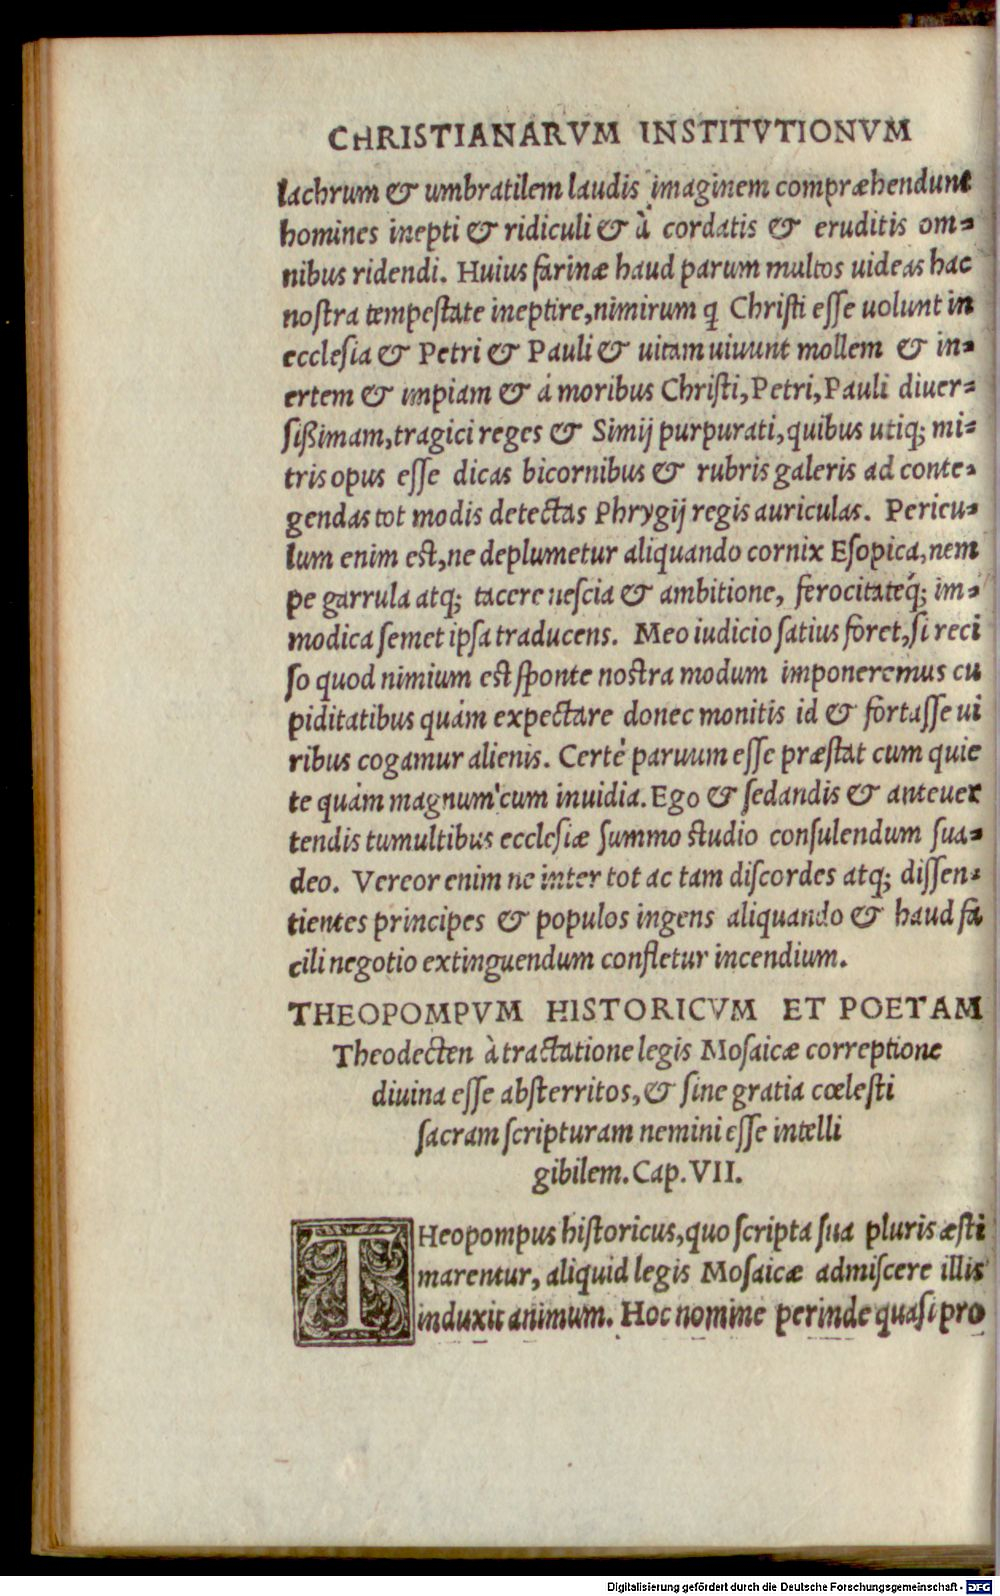 CHRISTIANARVM INSTITVTIONVM
lachrum & umbratilem laudis imaginem compræhendunt
homines inepti & ridiculi & à cordatis & eruditis om-
nibus ridendi. Huius farinæ haud parum multos uideas hac
nostra tempestate ineptire, nimirum q Christi esse uolunt in
ecclesia & Petri & Pauli & uitam uiuunt mollem & in-
ertem & impiam & á moribus Christi, Petri, Pauli diuer-
sißimam, tragici reges & Simij purpurati, quibus utiq; mi-
tris opus esse dicas bicornibus & rubris galeris ad conte-
gendas tot modis detectas Phrygij regis auriculas. Pericu-
lum enim est, ne deplumetur aliquando cornix Esopica, nem
pe garrula atq; tacere nescia & ambitione, ferocitateq́; im-
modica semet ipsa traducens. Meo iudicio satius foret, si reci
so quod nimium est sponte nostra modum imponeremus cu
piditatibus quám expectare donec monitis id & fortasse ui
ribus cogamur alienis. Certé paruum esse præstat cum quie
te quám magnum cum inuidia. Ego & sedandis & anteuer
tendis tumultibus ecclesiæ summo studio consulendum sua-
deo. Vereor enim ne inter tot ac tam discordes atq; dissen-
tientes principes & populos ingens aliquando & haud fa
cili negotio extinguendum confletur incendium.
THEOPOMPVM HISTORICVM ET POETAM
Theodecten à tractatione legis Mosaicæ correptione
diuina esse absterritos, & sine gratia cœlesti
sacram scripturam nemini esse intelli
gibilem. Cap. VII.
THeopompus historicus, quo scripta sua pluris æsti
marentur, aliquid legis Mosaicæ admiscere illis
induxit animum. Hoc nomine perinde quasi pro
Digitalisierung gefördert durch die Deutsche Forschungsgemeinschaft - DFG